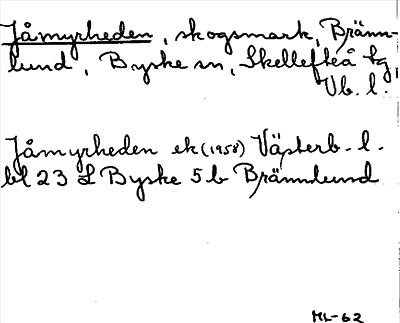 Jåmyrheden, skogsmark, Bränn-
lund, Byske sn, Skellefteå tg,
Vb. l.
Jåmyrheden ek (1958) Västerb. l.
bl 23 L Byske 5 b Brännlund
ML-62